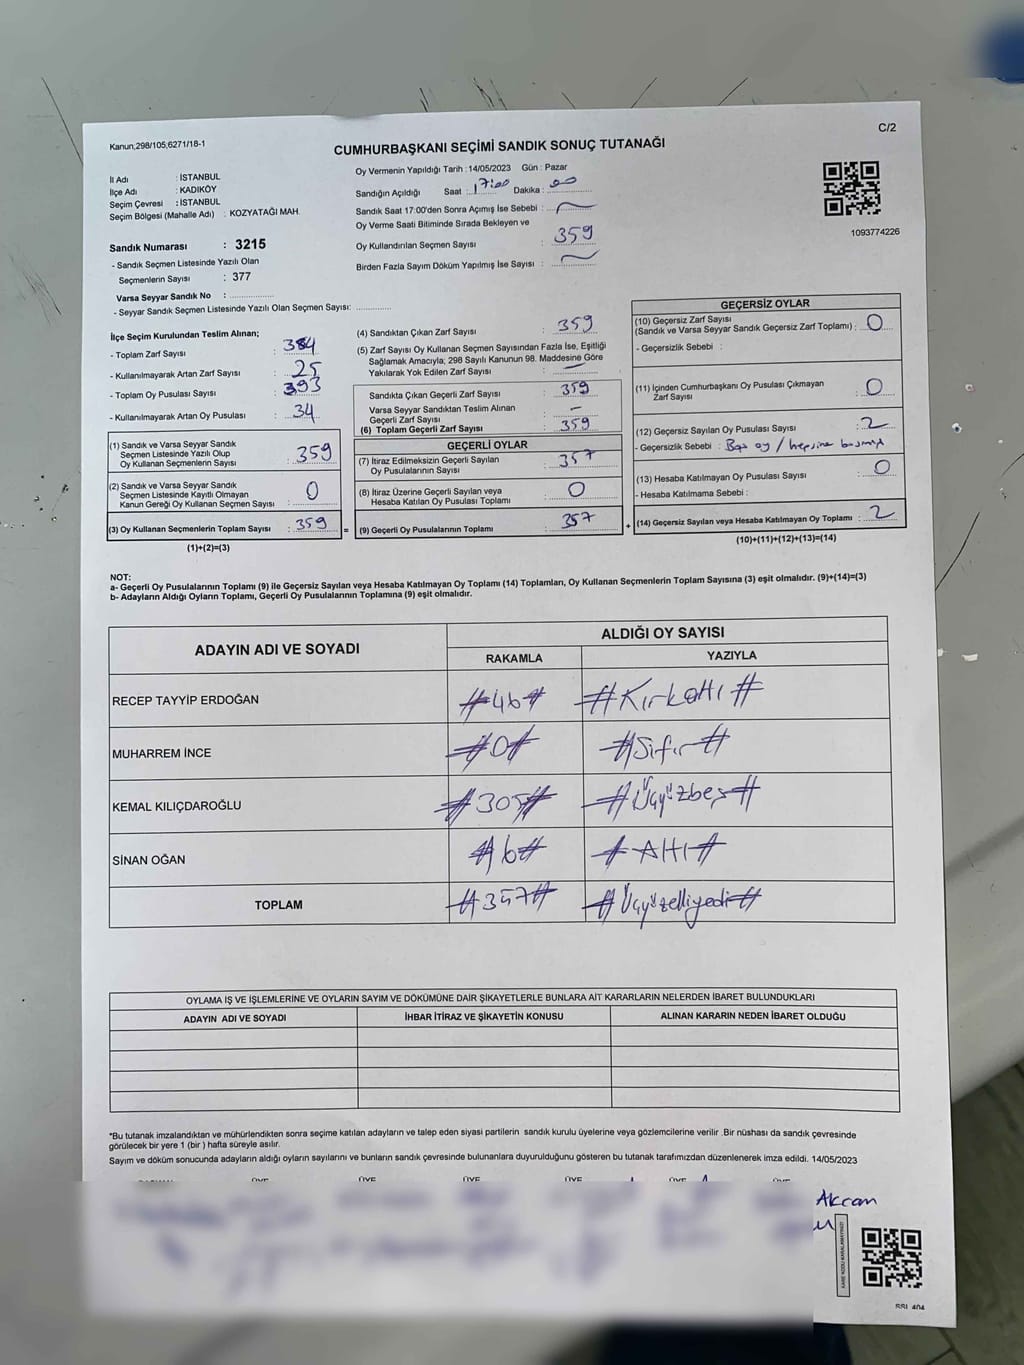 Kanun;298/105;6271/18-1
C/2
CUMHURBAŞKANI SEÇİMİ SANDIK SONUÇ TUTANAĞI
İl Adı : İSTANBUL
İlçe Adı : KADIKÖY
Seçim Çevresi : İSTANBUL
Seçim Bölgesi (Mahalle Adı) : KOZYATAĞI MAH.
Sandık Numarası : 3215
- Sandık Seçmen Listesinde Yazılı Olan
Seçmenlerin Sayısı : 377
Varsa Seyyar Sandık No : ..................
- Seyyar Sandık Seçmen Listesinde Yazılı Olan Seçmen Sayısı: ..............
Oy Vermenin Yapıldığı Tarih : 14/05/2023 Gün : Pazar
Sandığın Açıldığı Saat : 17:00 Dakika : 00
Sandık Saat 17:00'den Sonra Açmış İse Sebebi :
Oy Verme Saati Bitiminde Sırada Bekleyen ve
Oy Kullandırılan Seçmen Sayısı : 359
Birden Fazla Sayım Döküm Yapılmış İse Sayısı :
1093774226
İlçe Seçim Kurulundan Teslim Alınan;
- Toplam Zarf Sayısı : 384
- Kullanılmayarak Artan Zarf Sayısı : 25
- Toplam Oy Pusulası Sayısı : 393
- Kullanılmayarak Artan Oy Pusulası : 34
(1) Sandık ve Varsa Seyyar Sandık
Seçmen Listesinde Yazılı Olup
Oy Kullanan Seçmenlerin Sayısı : 359
(2) Sandık ve Varsa Seyyar Sandık
Seçmen Listesinde Kayıtlı Olmayan
Kanun Gereği Oy Kullanan Seçmen Sayısı : 0
(3) Oy Kullanan Seçmenlerin Toplam Sayısı : 359 =
(1)+(2)=(3)
(4) Sandıktan Çıkan Zarf Sayısı : 359
(5) Zarf Sayısı Oy Kullanan Seçmen Sayısından Fazla İse, Eşitliği
Sağlamak Amacıyla; 298 Sayılı Kanunun 98. Maddesine Göre
Yakılarak Yok Edilen Zarf Sayısı : —
Sandıkta Çıkan Geçerli Zarf Sayısı : 359
Varsa Seyyar Sandıktan Teslim Alınan
Geçerli Zarf Sayısı : —
(6) Toplam Geçerli Zarf Sayısı : 359
GEÇERLİ OYLAR
(7) İtiraz Edilmeksizin Geçerli Sayılan
Oy Pusulalarının Sayısı : 357
(8) İtiraz Üzerine Geçerli Sayılan veya
Hesaba Katılan Oy Pusulası Toplamı : 0
(9) Geçerli Oy Pusulalarının Toplamı : 357 +
GEÇERSİZ OYLAR
(10) Geçersiz Zarf Sayısı
(Sandık ve Varsa Seyyar Sandık Geçersiz Zarf Toplamı) : 0
- Geçersizlik Sebebi :
(11) İçinden Cumhurbaşkanı Oy Pusulası Çıkmayan
Zarf Sayısı : 0
(12) Geçersiz Sayılan Oy Pusulası Sayısı : 2
- Geçersizlik Sebebi : Boş oy / hepsine basmış
(13) Hesaba Katılmayan Oy Pusulası Sayısı : 0
- Hesaba Katılmama Sebebi :
(14) Geçersiz Sayılan veya Hesaba Katılmayan Oy Toplamı : 2
(10)+(11)+(12)+(13)=(14)
NOT:
a- Geçerli Oy Pusulalarının Toplamı (9) ile Geçersiz Sayılan veya Hesaba Katılmayan Oy Toplamı (14) Toplamları, Oy Kullanan Seçmenlerin Toplam Sayısına (3) eşit olmalıdır. (9)+(14)=(3)
b- Adayların Aldığı Oyların Toplamı, Geçerli Oy Pusulalarının Toplamına (9) eşit olmalıdır.
ADAYIN ADI VE SOYADI ALDIĞI OY SAYISI
RAKAMLA YAZIYLA
RECEP TAYYİP ERDOĞAN #46# #Kırkaltı#
MUHARREM İNCE #0# #Sıfır#
KEMAL KILIÇDAROĞLU #305# #Üçyüzbeş#
SİNAN OĞAN #6# #Altı#
TOPLAM #357# #Üçyüzelliyedi#
OYLAMA İŞ VE İŞLEMLERİNE VE OYLARIN SAYIM VE DÖKÜMÜNE DAİR ŞİKAYETLERLE BUNLARA AİT KARARLARIN NELERDEN İBARET BULUNDUKLARI
ADAYIN ADI VE SOYADI İHBAR İTİRAZ VE ŞİKAYETİN KONUSU ALINAN KARARIN NEDEN İBARET OLDUĞU
*Bu tutanak imzalandıktan ve mühürlendikten sonra seçime katılan adayların ve talep eden siyasi partilerin sandık kurulu üyelerine veya gözlemcilerine verilir .Bir nüshası da sandık çevresinde
görülecek bir yere 1 (bir ) hafta süreyle asılır.
Sayım ve döküm sonucunda adayların aldığı oyların sayılarını ve bunların sandık çevresinde bulunanlara duyurulduğunu gösteren bu tutanak tarafımızdan düzenlenerek imza edildi. 14/05/2023
ÜYE ÜYE ÜYE ÜYE ÜYE
Akcan
KARE KODU KARALAMAYINIZ!